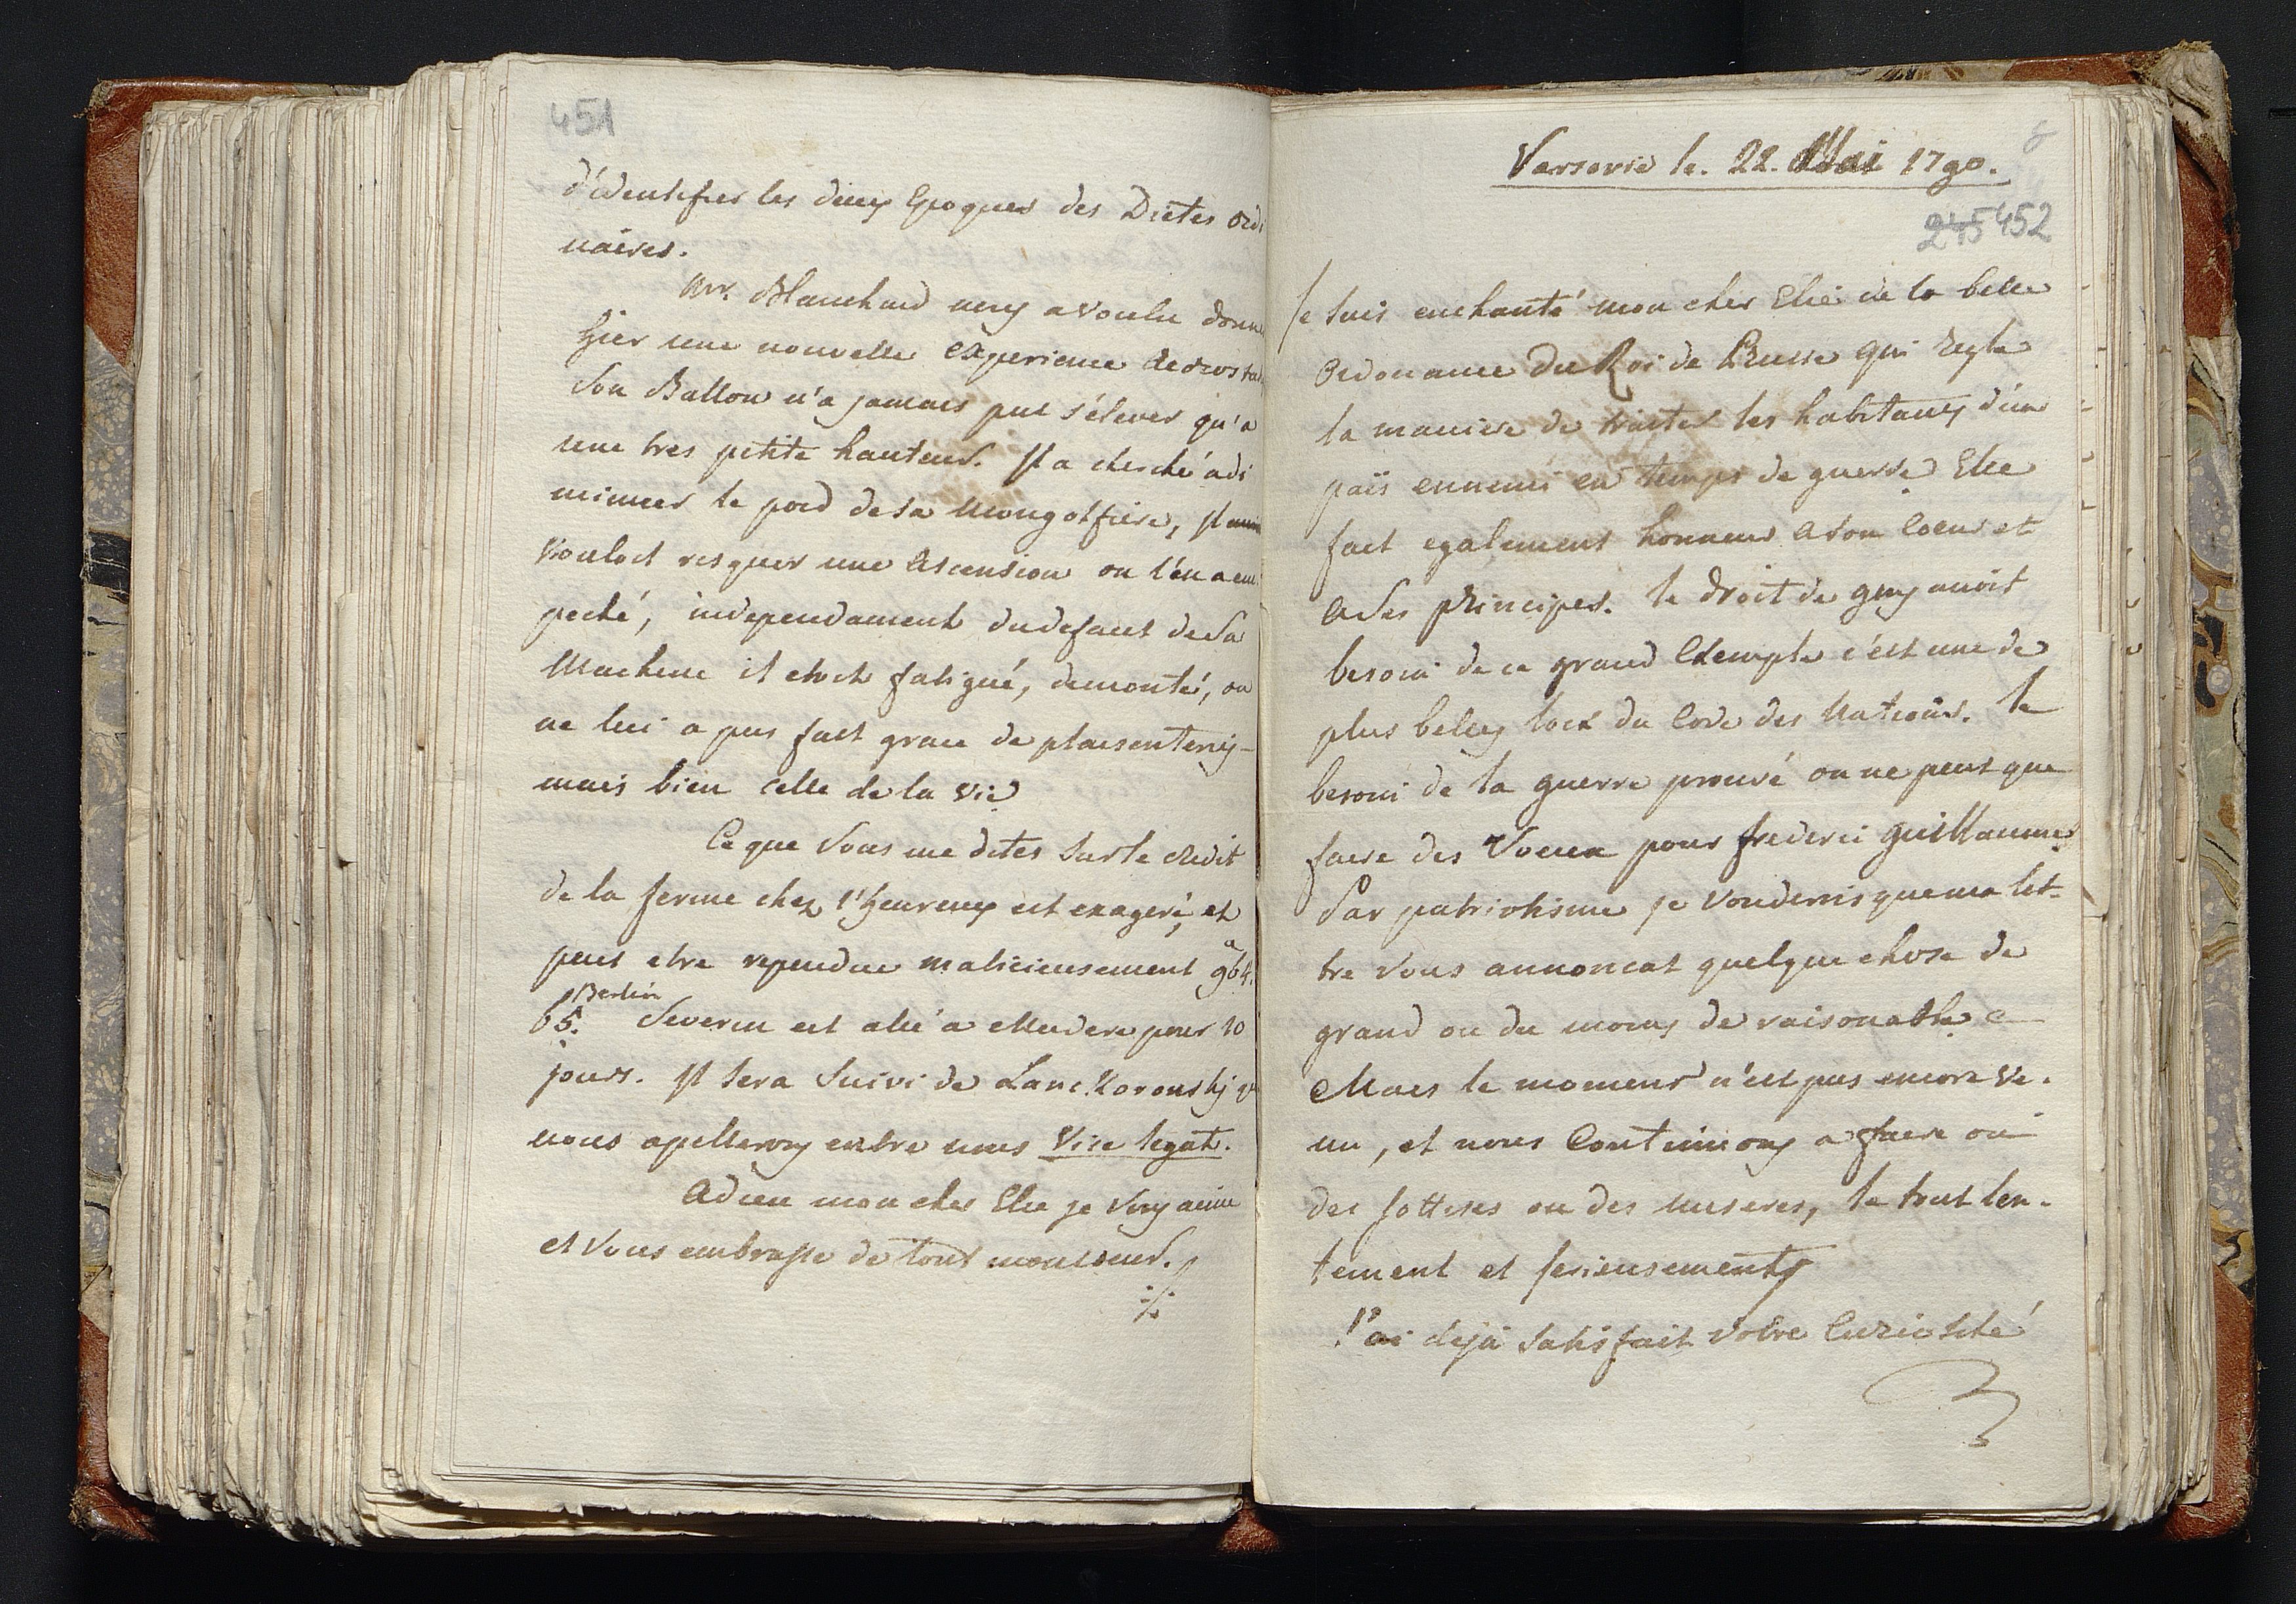 451
d'identifier les deux Epoques des Dietes ordi
naires.
Mr. Blanchard aiy a voulu donn
hier une nouvelle experience aerosta
Son Ballon n'a jamais pue s'élever qu'a
une tres petite hauteur. Il a cherché a di
minuer le poid de sa Mongolfiere, Il
vouloit risquer une Ascension on l'en a em
peché, independament du defaut de Sa
Machine il etoit fatigué, demonté, on
ne lui a pas fait grace de plaisenteries
mais bien celle de la vie
Ce que Vous me dites Sur le credit
de la ferme chez l'heureux est exageré, et
peut etre rependue malicieusement a 964.
Berlin
65. Severin est alié a Madere pour 10
jours. Il Sera Suivi de Lanckoronskj q
nous apellerons entre nous Vice legat.
Adieu mon cher Elie je Vous aime
et Vous embrasse de tout mon coeur.
Varsovie le. 22. Mai 1790.
8
245 452
Je Suis enchanté mon cher Elie de la belle
Ordonance du Roi de Prusse qui regle
la maniere de traiter les habitans d'un
païs ennemi en temps de guerre Elle
fait egalement honneur a Son Coeur et
a Ses principes. le droit de gens avoit
besoin de ce grand Exemple c'est une de
plus belles loix du Code des Nations. le
besoin de la guerre prouvé on ne peut que
faire des Voeux pour frederic guillaume
Par patriotisme je Voudrois que ma let-
tre Vous annoncat quelque chose de
grand ou du moins de raisonable
Mais le moment n'est pas encore ve-
nu, et nous Continuons a faire ou
des sottises ou des miseres, le tout len-
tement et serieusement
J'ai dejà Satisfait Votre Curiosité